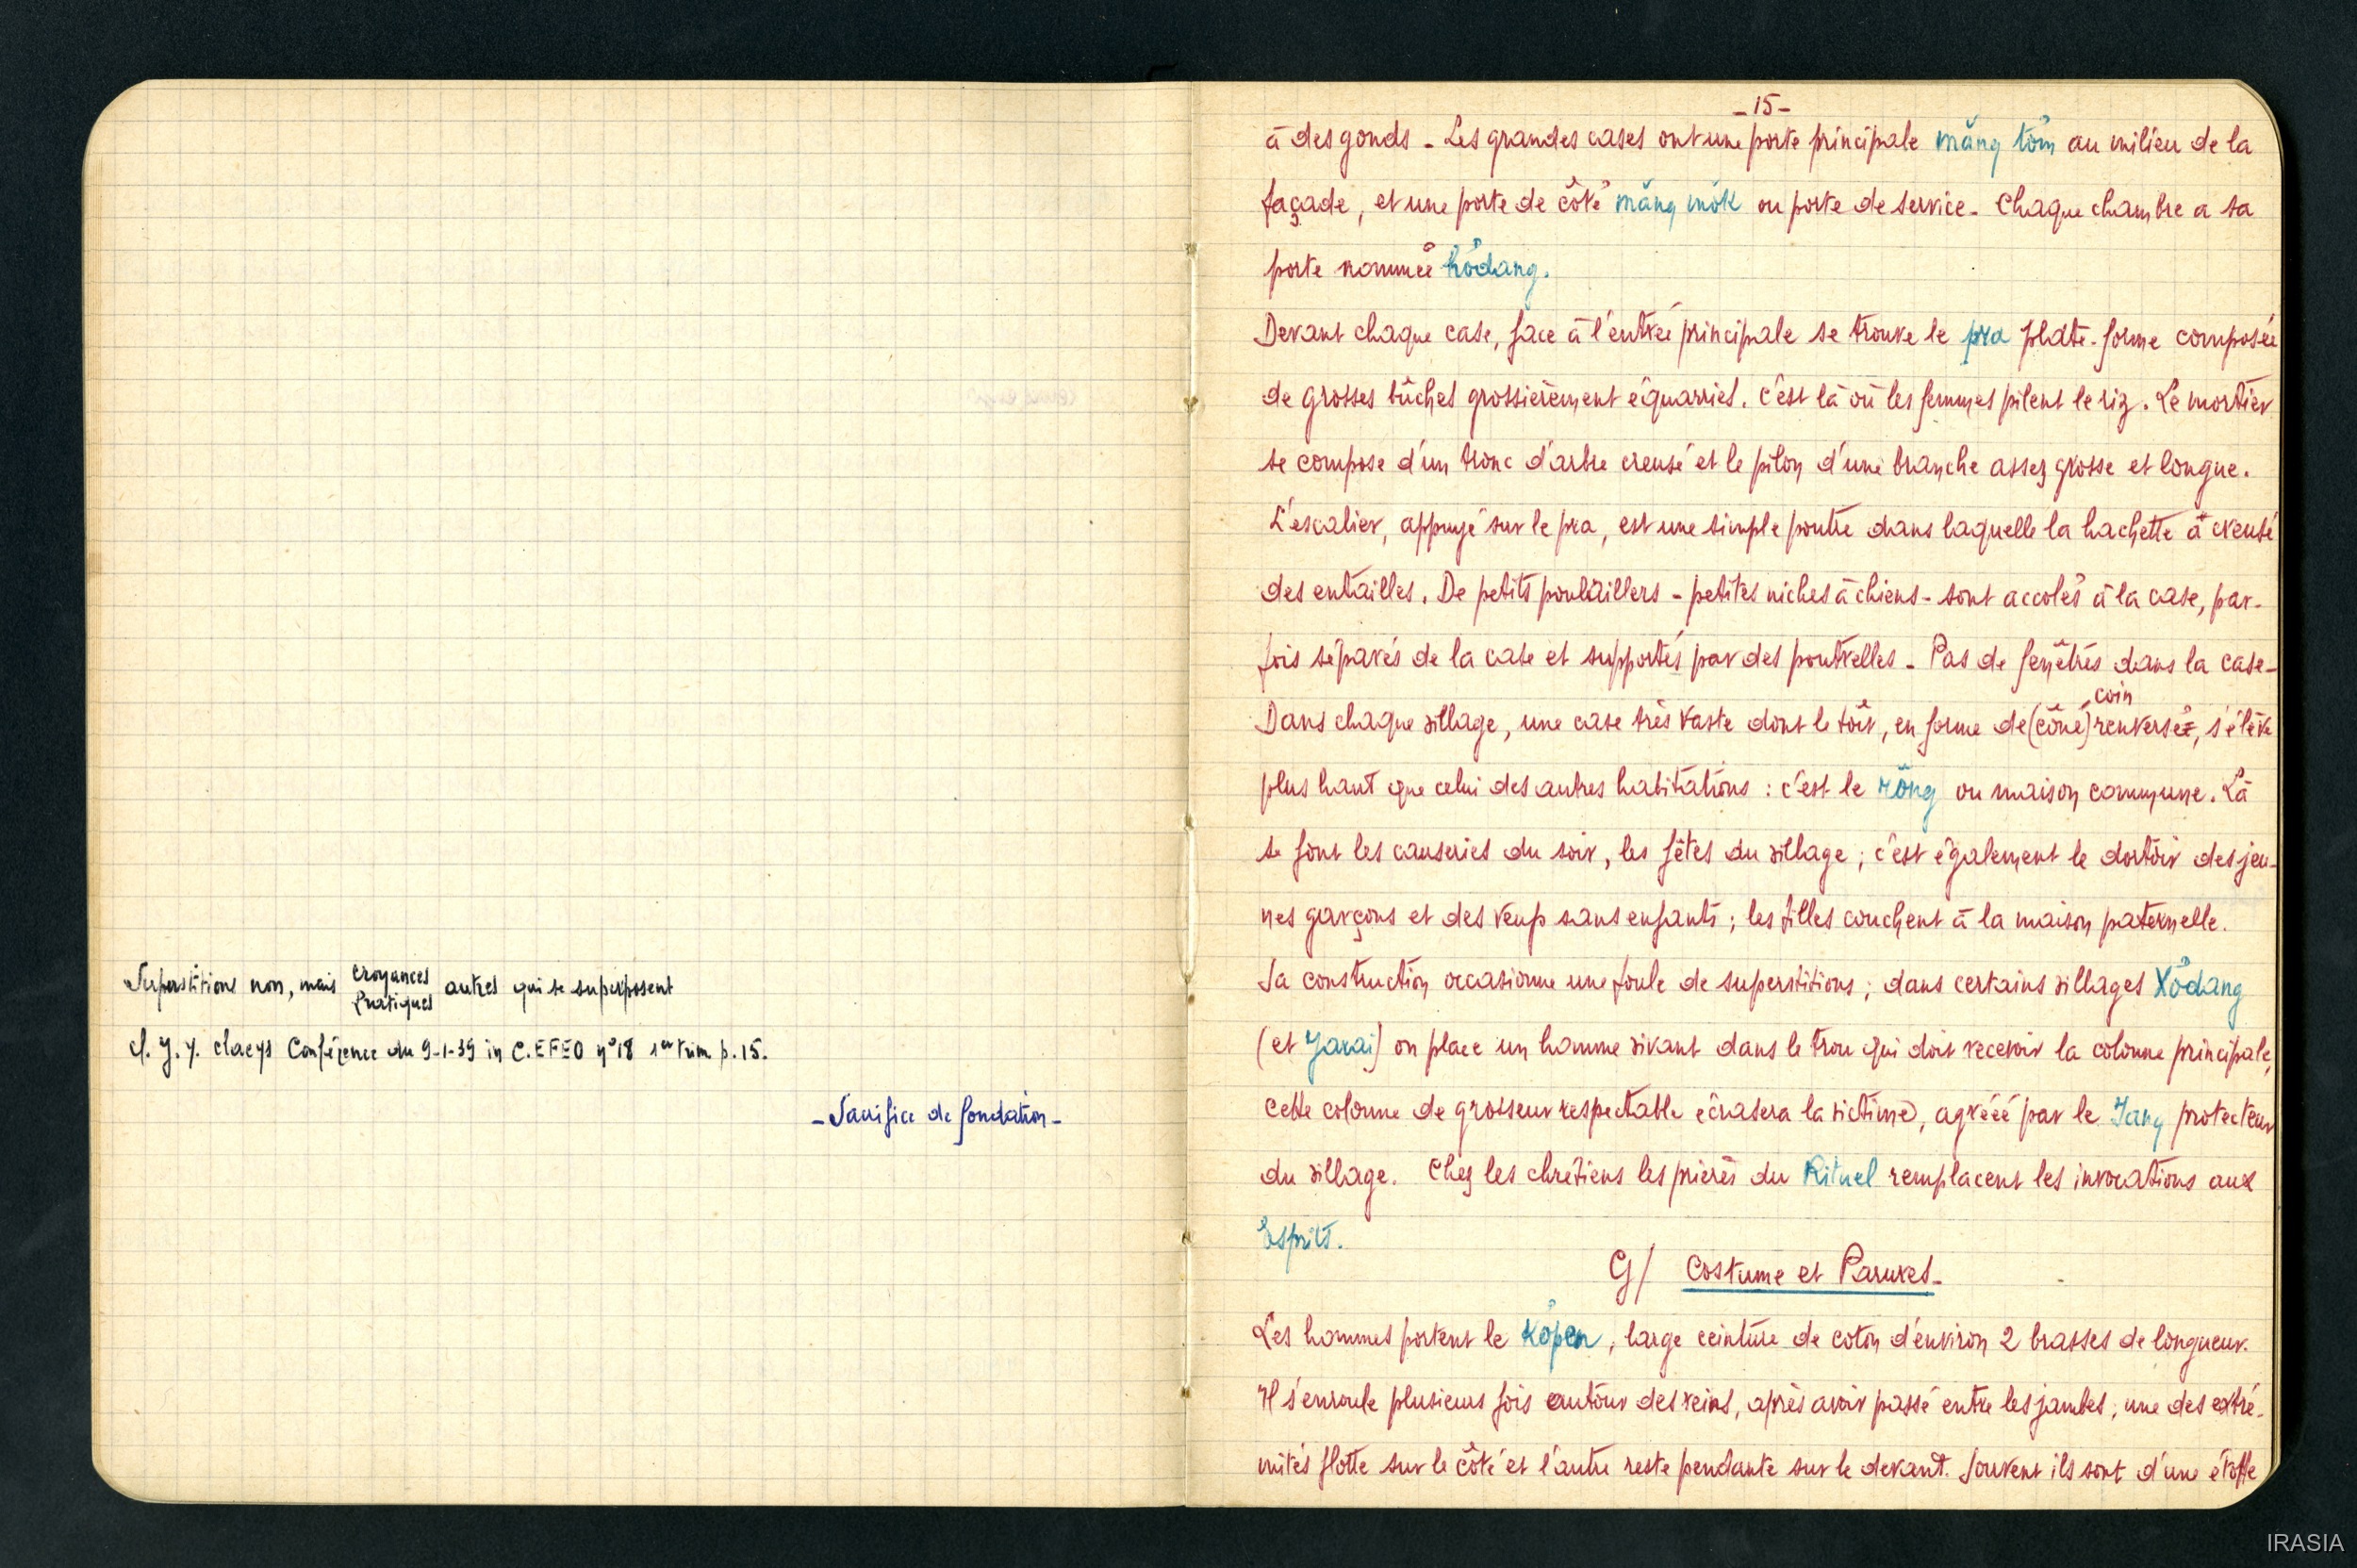 Superstitions non, mais croyances autres qui se superposent
Pratiques
cf. J. Y. Claeys Conférence du 9-1-39 in C.EFEO n°18 1er trim p.15.
- Sacrifice de fondation -
- 15 -
à des gonds - Les grandes cases ont une porte principale măng tŏm au milieu de la
façade, et une porte de côté măng mŏk ou porte de service - Chaque chambre a sa
porte nommée hơdang.
Devant chaque case, face à l'entrée principale se trouve le pra plate-forme composée
de grosses bûches grossièrement équarries. C'est là où les femmes pilent le riz. Le mortier
se compose d'un tronc d'arbre creusé et le pilon d'une branche assez grosse et longue.
L'escalier, appuyé sur le pra, est une simple poutre dans laquelle la hachette a creusé
des entailles. De petits poulaillers - petites niches à chiens - sont accolés à la case, par-
fois séparés de la case et supportés par des poutrelles - Pas de fenêtres dans la case -
coin
Dans chaque village, une case très vaste dont le toit, en forme de (cône) renversé, s'élève
plus haut que celui des autres habitations : c'est le rông ou maison commune. Là
se font les causeries du soir, les fêtes du village ; c'est également le dortoir des jeu-
nes garçons et des veufs sans enfants ; les filles couchent à la maison paternelle.
Sa construction occasionne une foule de superstitions ; dans certains villages Xơdang
(et Jarai) on place un homme vivant dans le trou qui doit recevoir la colonne principale,
cette colonne de grosseur respectable écrasera la victime, agréée par le Iang protecteur
du village. Chez les chrétiens les prières du Rituel remplacent les invocations aux
Esprits.
G/ Costume et Parures -
Les hommes portent le kơpen, large ceinture de coton d'environ 2 brasses de longueur.
Il s'enroule plusieurs fois autour des reins, après avoir passé entre les jambes ; une des extré-
mités flotte sur le côté et l'autre reste pendante sur le devant. Souvent ils sont d'une étoffe
IRASIA